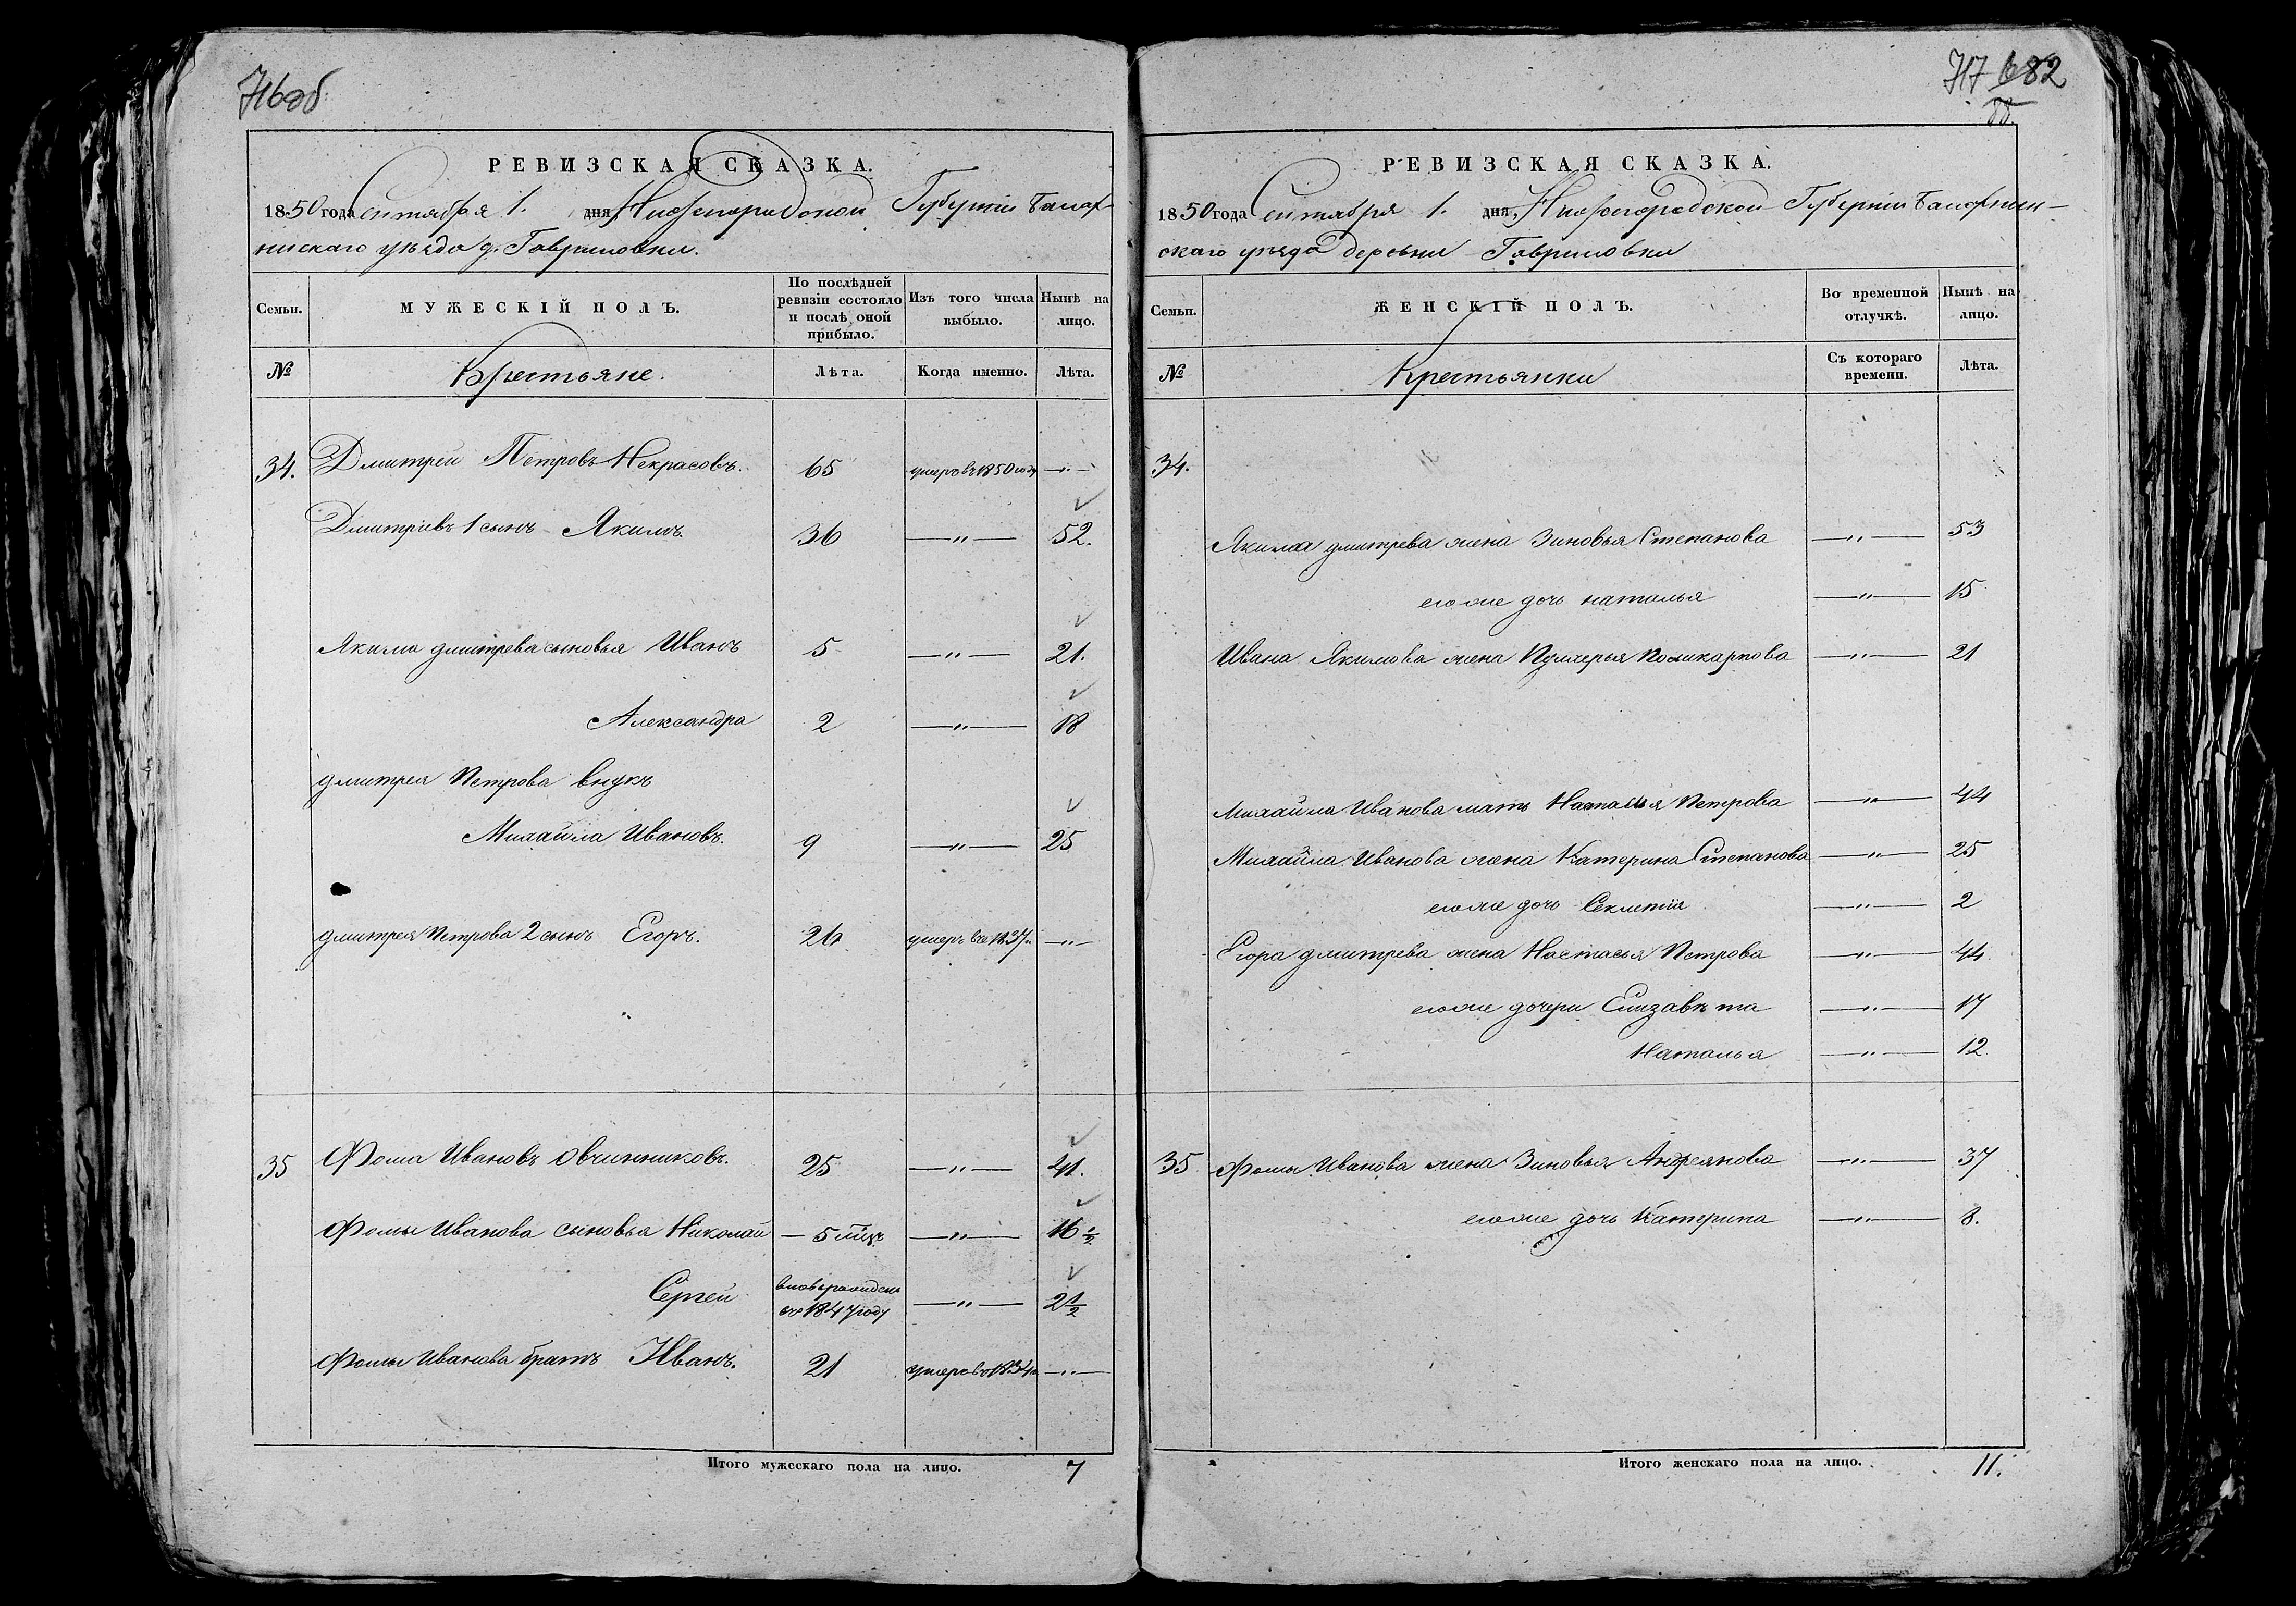 716об
РЕВИЗСКАЯ СКАЗКА.
1850 года Сентября 1. дня, Нижегородской Губернiи Балах-
нинскаго уѣзда д. Гавриловки.
Семьи.
МУЖЕСКIЙ ПОЛЪ.
По послѣдней ревизiи состояло и послѣ оной прибыло.
Изъ того числа выбыло.
Нынѣ на лицо.
№
Крестьяне.
Лѣта.
Когда именно.
Лѣта.
34. Дмитрей Петровъ Некрасовъ. 65 умеръ въ 1850 году —„—
Дмитрiевъ 1 сынъ Якимъ. 36 —„— 52.
Якима дмитрева сыновья Иванъ 5 —„— 21.
Александра 2 —„— 18
дмитрея Петрова внукъ
Михайла Ивановъ. 9 —„— 25
дмитрея Петрова 2 сынъ Егоръ. 26 умеръ въ 1837г. —„—
35 Фома Ивановъ Овчинниковъ. 25 —„— 41.
Фомы Иванова сыновья Николай — 5 мѣц. —„— 16 1/2
Сергей вновь рожденъ въ 1847 году —„— 2 1/2
Фомы Иванова братъ Иванъ. 21 умеръ въ 1834г. —„—
Итого мужескаго пола на лицо. 7
717 682
об.
РЕВИЗСКАЯ СКАЗКА.
1850 года Сентября 1. дня, Нижегородской Губернiи Балахнин-
скаго уѣзда деревни Гавриловки
Семьи.
ЖЕНСКIЙ ПОЛЪ.
Во временной отлучкѣ.
Нынѣ на лицо.
№
Крестьянки
Съ котораго времени.
Лѣта.
34.
Якима дмитрева жена Зиновья Степанова —„— 53
его же дочь наталья —„— 15
Ивана Якимова жена Пулхерья Поликарпова —„— 21
Михайла Иванова мать Наталья Петрова —„— 44
Михайла Иванова жена Катерина Степанова —„— 25
его же дочь Секлетiя —„— 2
Егора дмитрева жена Настасья Петрова —„— 44.
его же дочери Елизавѣта —„— 17
Наталья —„— 12.
35 Фомы Иванова жена Зиновья Андреянова —„— 37
его же дочь Катерина —„— 8.
Итого женскаго пола на лицо. 11.